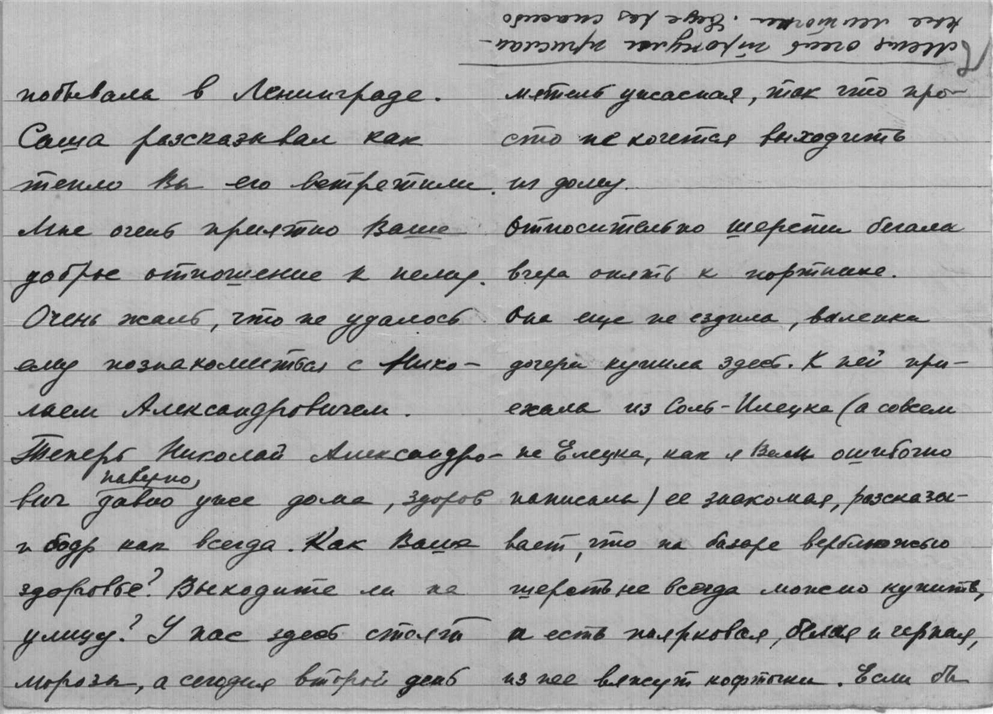 побывала в Ленинграде.
Саша рассказывал как
тепло Вы его встретили.
Мне очень приятно Ваше
доброе отношение к нему.
Очень жаль, что не удалось
ему познакомиться с Нико-
лаем Александровичем.
Теперь Николай Александро-
наверно,
вич давно уже дома, здоров
и бодр как всегда. Как Ваше
здоровье? Выходите ли на
улицу? У нас здесь стоят
морозы, а сегодня второй день
метель ужасная, так что про-
сто не хочется выходить
из дому.
Относительно шерсти бегала
вчера опять к портнихе.
Она еще не ездила, валенки
дочери купила здесь. К ней при-
ехала из Соль-Илецка (а совсем
не Елецка, как я Вам ошибочно
написала) ее знакомая, рассказы-
вает, что на базаре верблюжью
шерсть не всегда можно купить,
а есть поярковая, белая и черная,
из нее вяжут кофточки. Если бы
Меня очень тронули прислан-
ные ленточки. Еще раз спасибо